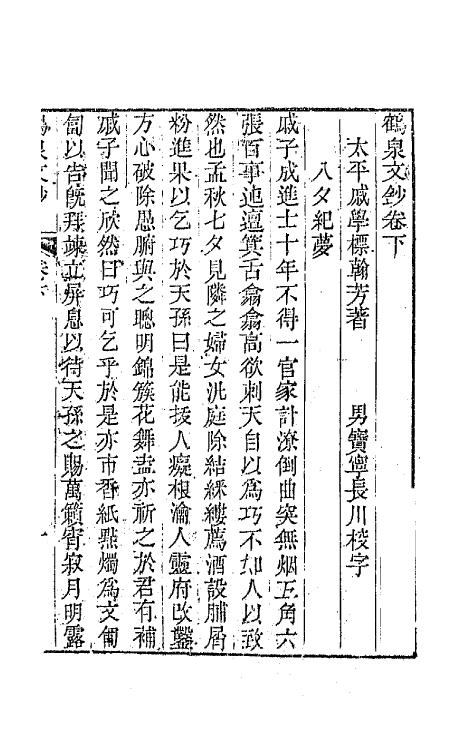 鶴泉文鈔卷下
太平戚學標翰芳著　男寶寧長川校字
八夕紀夢
戚子成進士十年不得一官家計潦倒曲突無烟五角六
張百事迍邅箕舌翕翕高欲刺天自以爲巧不如人以致
然也孟秋七夕見隣之婦女汛庭除結綵縷薦酒設脯屑
粉進果以乞巧於天孫曰是能拔人癡根瀹人靈府改鑿
方心破除愚腑與之聰明錦簇花舞盍亦祈之於君有補
戚子聞之欣然曰巧可乞乎於是亦市香紙點燭爲文匍
匐以告旣拜竦立屏息以待天孫之賜萬籟宵寂月明露
鶴泉文鈔　卷下　一